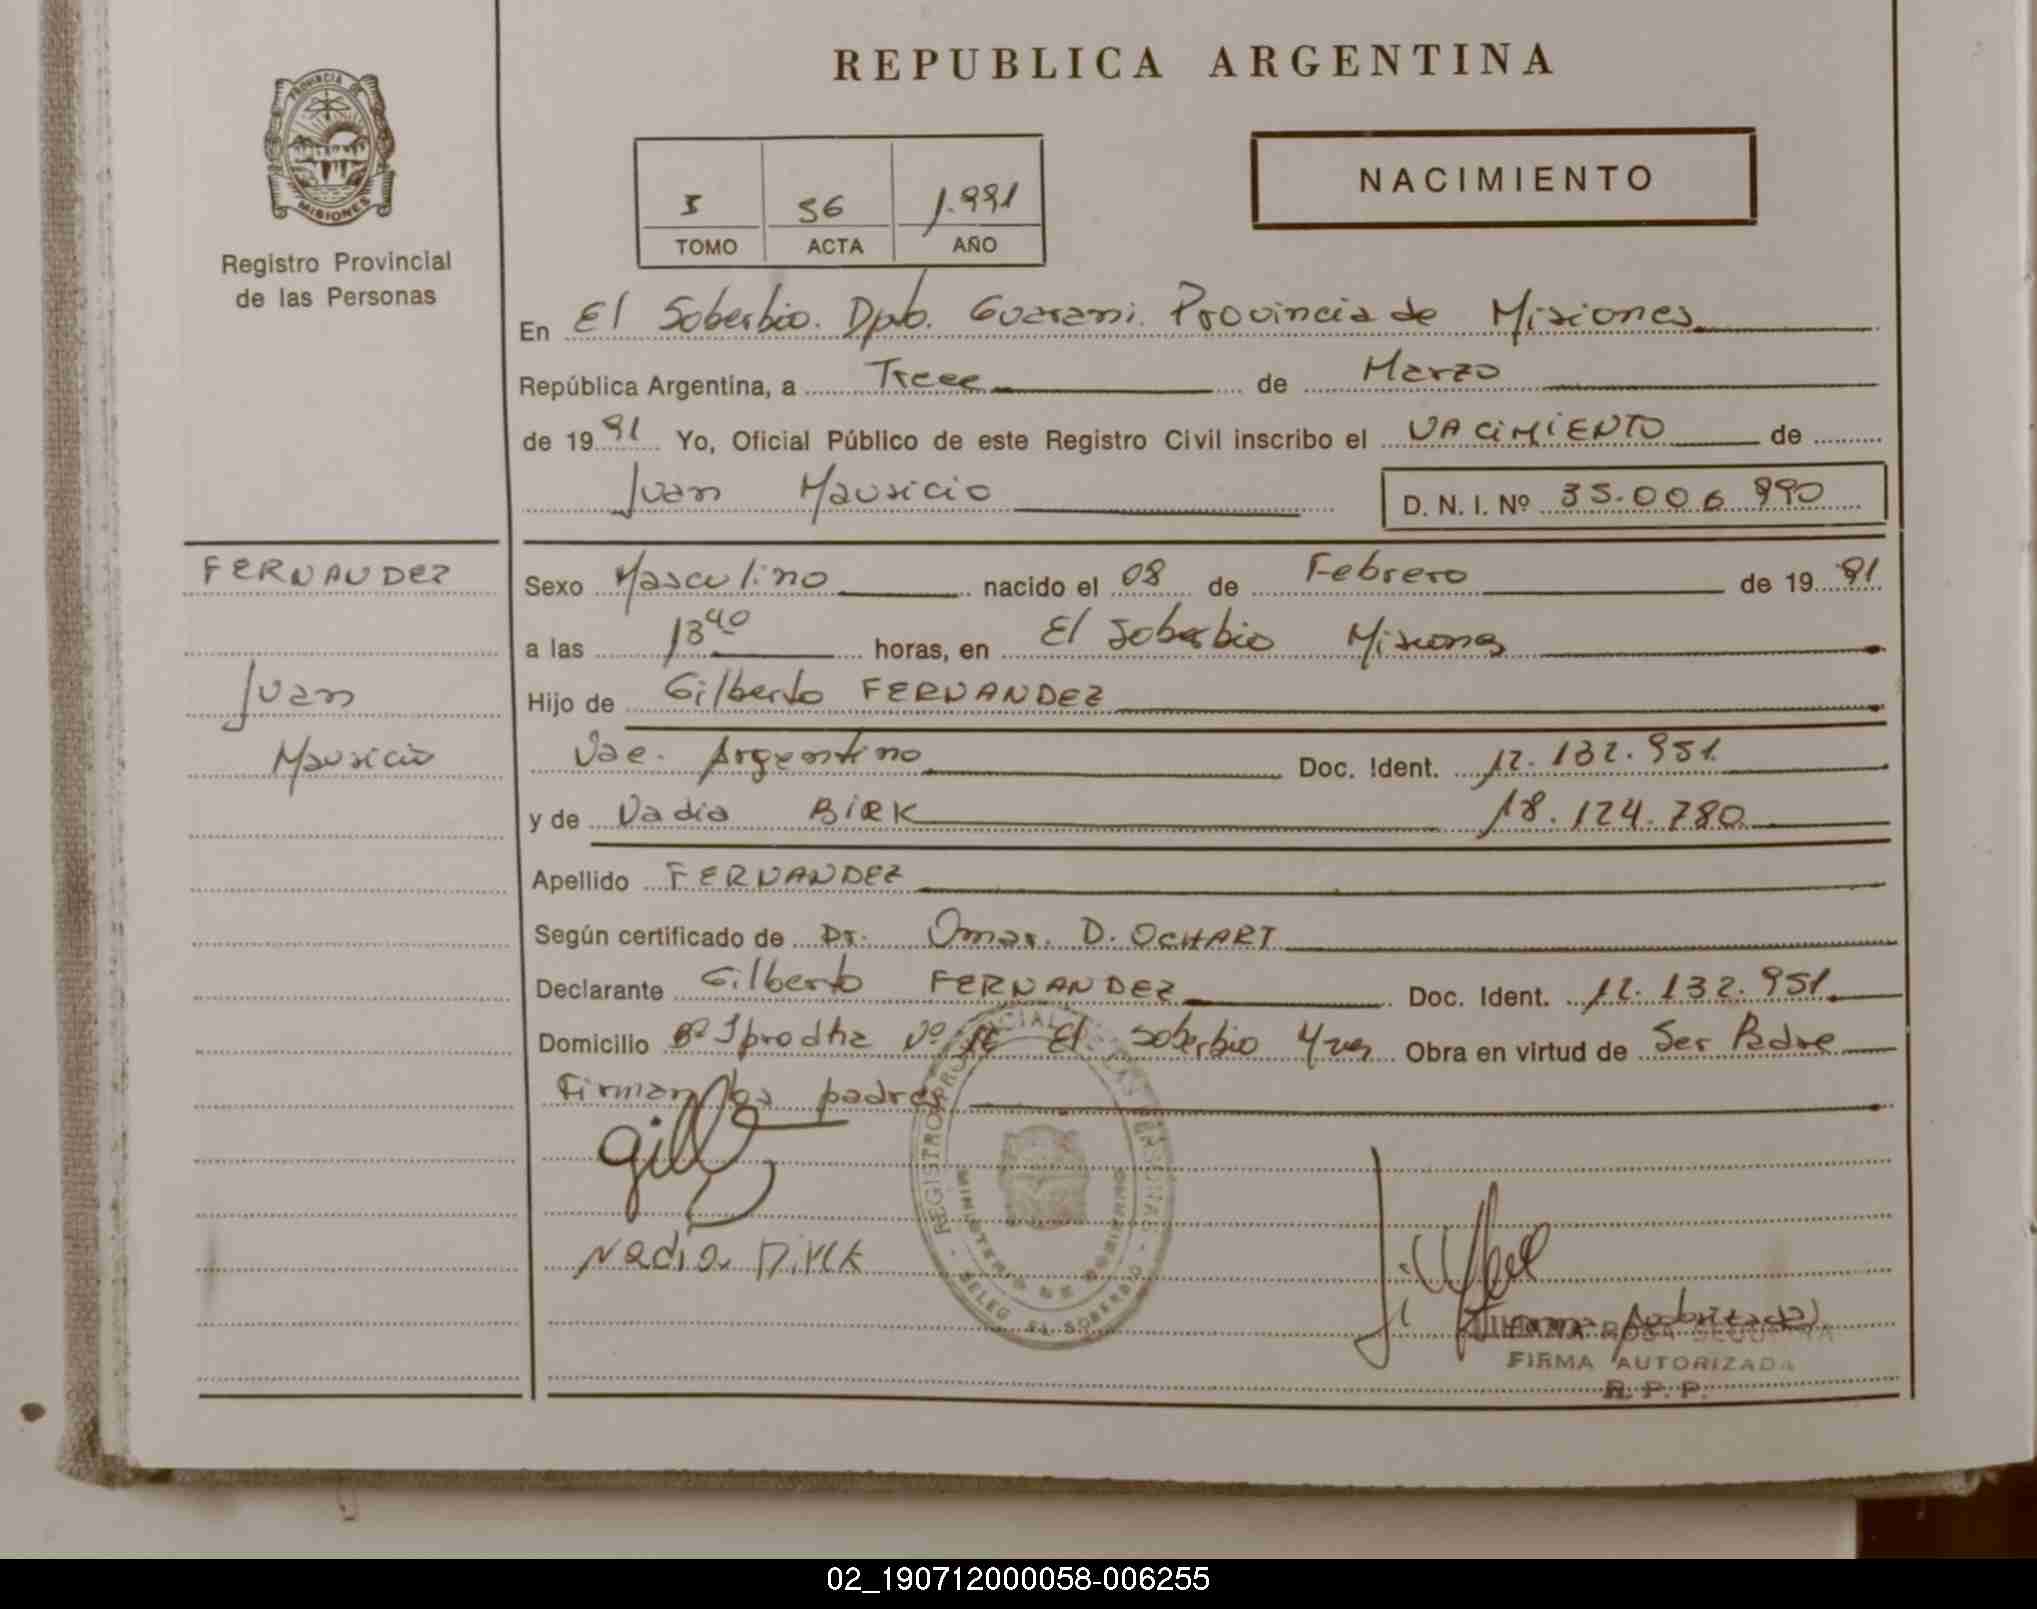 REPUBLICA ARGENTINA
PROVINCIA DE
MISIONES
Registro Provincial
de las Personas
5 56 1.991
TOMO ACTA AÑO
NACIMIENTO
En El Soberbio. Dpto. Guarani. Provincia de Misiones
República Argentina, a Trece de Marzo
de 1991 Yo, Oficial Público de este Registro Civil inscribo el NACIMIENTO de
Juan Mauricio D. N. I. Nº 35.006 990
FERNANDEZ
Juan
Mauricio
Sexo Masculino nacido el 08 de Febrero de 1991
a las 13 40 horas, en El Soberbio Misiones
Hijo de Gilberto FERNANDEZ
Nac. Argentino Doc. Ident. 12.132.951
y de Nadia BIRK 18.124.780
Apellido FERNANDEZ
Según certificado de Dr. Omar. D. OCHART
Declarante Gilberto FERNANDEZ Doc. Ident. 12.132.951
Domicilio Bº Iprodha Nº El Soberbio Obra en virtud de Ser Padre
Firman los padres
REGISTRO PROVINCIAL DE LAS PERSONAS
MINISTERIO DE GOBIERNO
DELEG. EL SOBERBIO
Nadia Birk
FIRMA AUTORIZADA
R. P. P.
02_190712000058-006255